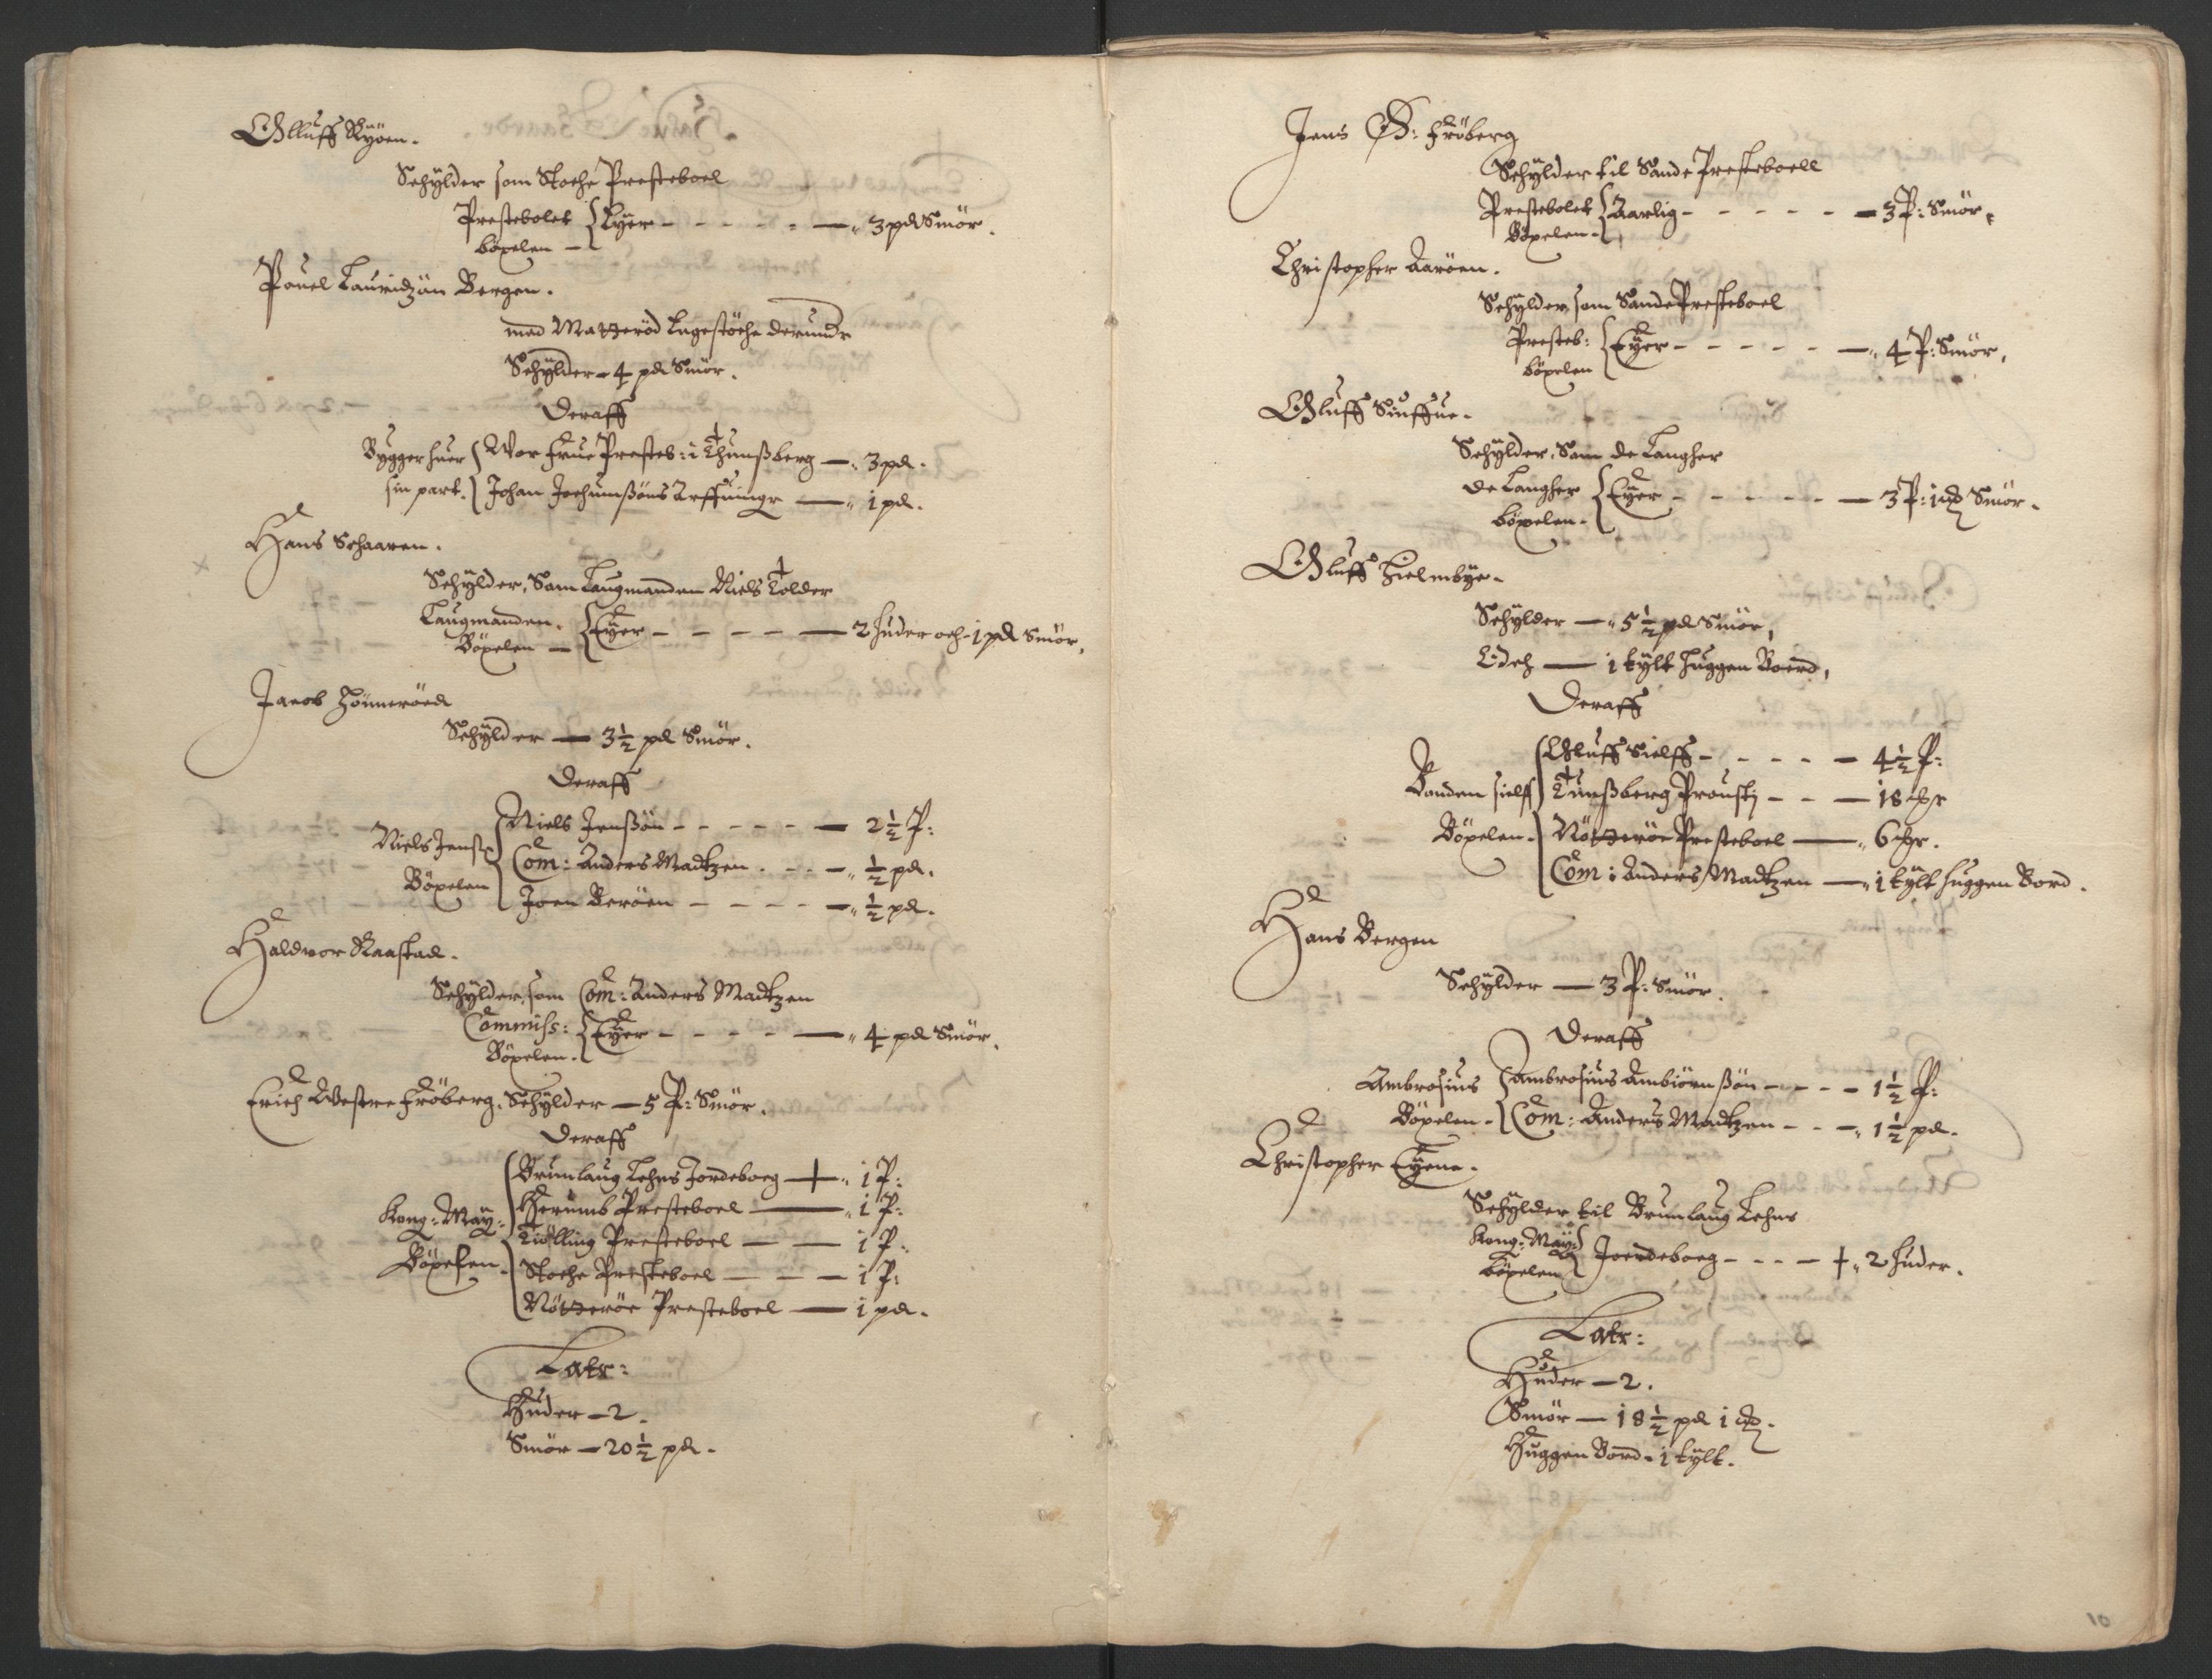 Olluff Ryöen.
Schylder som Stoche Presteboel
Prestebolet Eyer - - - - - 3 pd Smör.
böxelen -
Pouel Lauridzön Bergen.
med Matzeröd lagestöche derunder
Schylder - 4 pd Smör.
Deraff
Bygger huer Wor Frue Presteb: i Thunßberg - 3 pd.
sin part. Johan Jochumßöns Arffuinger - 1 pd.
Hans Schaaren.
Schylder, Som Laugmanden Niels Tolder
Laugmanden. Eyer - - - - 2 huder och 1 pd Smör.
Böxelen -
Jacob Hönneröed
Schylder - 3½ pd Smör.
Deraff
Niels Jenßön - - - - - 2½ P:
Niels Jenß: Com: Anders Madtzen - - - ½ pd.
Böxelen Joen Beröen - - - - ½ pd.
Haldvor Raastad.
Schylder, som Com: Anders Madtzen
Commiss: Eyer - - - - - 4 pd Smör.
Böxelen.
Erich Westre Fröberg. Schylder - 5 P: Smör.
Deraff
Brunlaug Lehns Jordeboeg - 1 P:
Kong: May: Herumb Presteboel - 1 P:
Tiølling Presteboel - - 1 P:
Böxelen. Stoche Presteboel - - - 1 P:
Nötzeröe Presteboel - 1 pd.
Latr:
Huder - 2.
Smör - 20½ pd.
Jens Ø: Fröberg
Schylder til Sande Presteboell
Prestebolet Aarlig - - - - - 3 P: Smör.
Böxelen.
Christopher Aaröen.
Schylder, som Sande Presteboel
Presteb: Eyer - - - - - 4 P: Smör.
böxelen
Olluff Siuffue.
Schylder, Som de Langher
de Langher Eyer - - - - - 3 P: 1 Smör.
böxelen.
Olluff Hielmbye.
Schylder - 5½ pd Smör,
Item - 1 tylt huggen Boerd,
Deraff
Olluff Sielff - - - - - 4½ P:
Bonden sielff Tunßberg Prousti - - - 18
Böxelen. Nötzeröe Presteboel - 6
Com: Anders Madtzen - 1 tylt huggen Bord.
Hans Bergen
Schylder - 3 P: Smör.
Deraff
Ambrosius Ambrosius Ambiörnßön - - - - 1½ P:
Böxelen. Com: Anders Madtzen - - - 1½ pd.
Christopher Eyene.
Schylder til Brunlaug Lehns
Kong: May: Joerdeboeg - - - - 2 huder.
böxelen
Latr:
Huder - 2.
Smör - 18½ pd 1
Huggen Bord - 1 tylt.
10